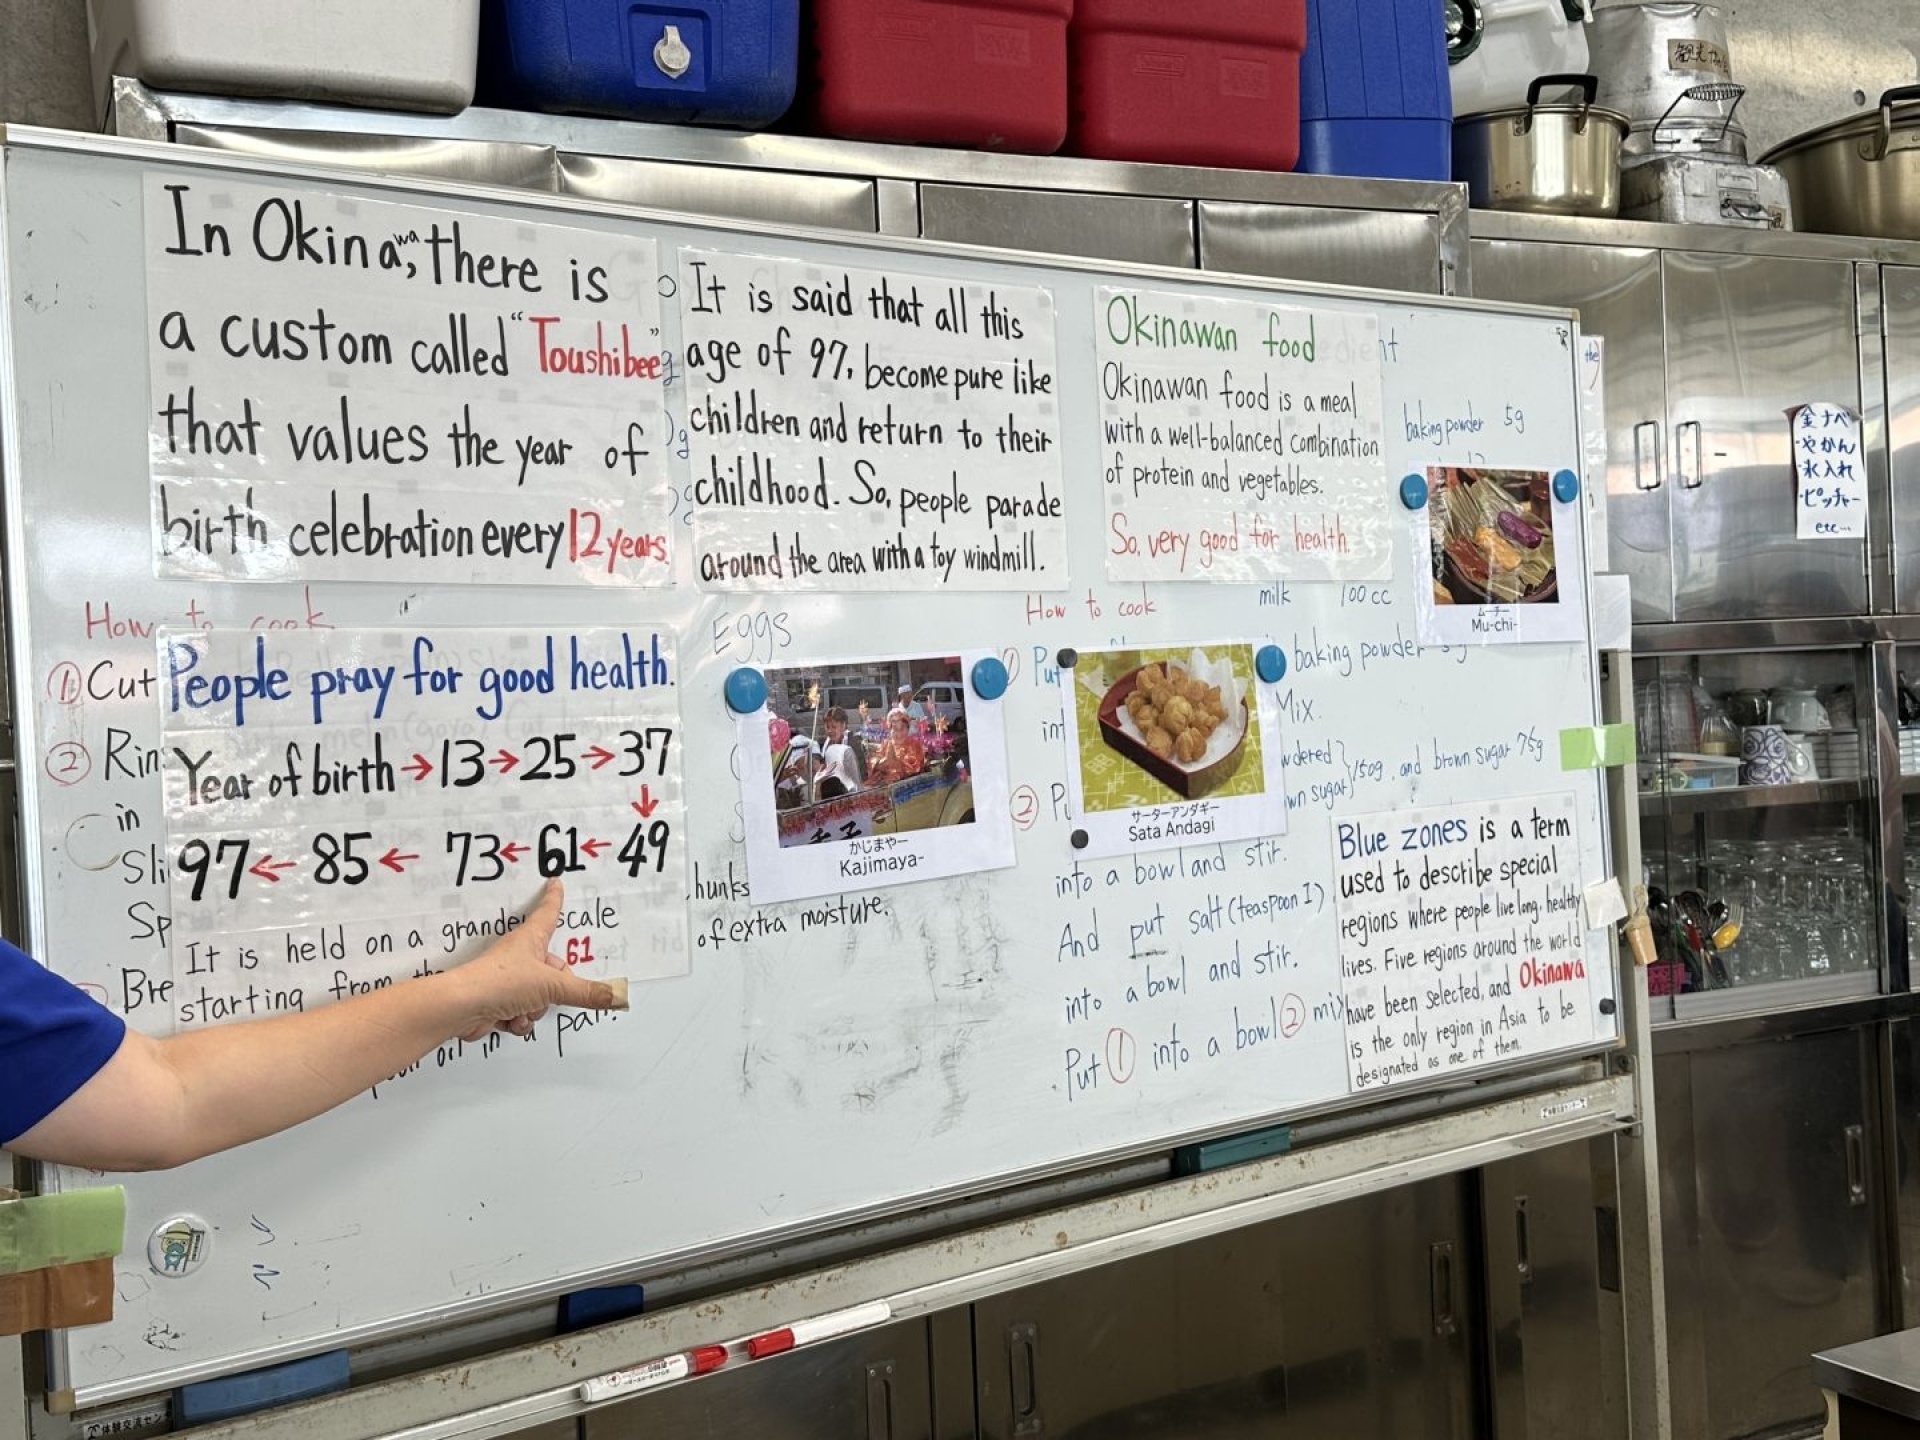 In Okinawa, there is
a custom called "Toushibee"
that values the year of
birth celebration every 12 years.
It is said that all this
age of 97, become pure like
children and return to their
childhood. So, people parade
around the area with a toy windmill.
Okinawan food
Okinawan food is a meal
with a well-balanced combination
of protein and vegetables.
So, very good for health.
baking powder 5g
ムーチー
Mu-chi-
金ナベ
・やかん
・氷入れ
・ピッチャー
etc...
How to cook
① Cut
② Rin
in
Sli
Sp
Bre
People pray for good health.
Year of birth → 13 → 25 → 37
↓
97 ← 85 ← 73 ← 61 ← 49
It is held on a grander scale
starting from the 61.
oil in a pan.
Eggs
かじまやー
Kajimaya-
hunks
of extra moisture.
How to cook
milk 100cc
① Put
baking powder 5g
int
Mix.
② Pu
150g, and brown sugar 75g
サーターアンダギー
Sata Andagi
into a bowl and stir.
And put salt (teaspoon 1)
into a bowl and stir.
Put ① into a bowl ② mix
Blue zones is a term
used to describe special
regions where people live long, healthy
lives. Five regions around the world
have been selected, and Okinawa
is the only region in Asia to be
designated as one of them.